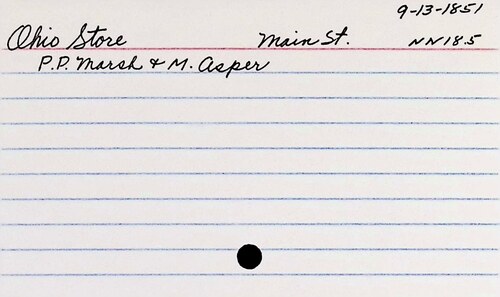 9-13-1851
Ohio Store Main St. NN18.5
P.P. Marsh & M. Asper